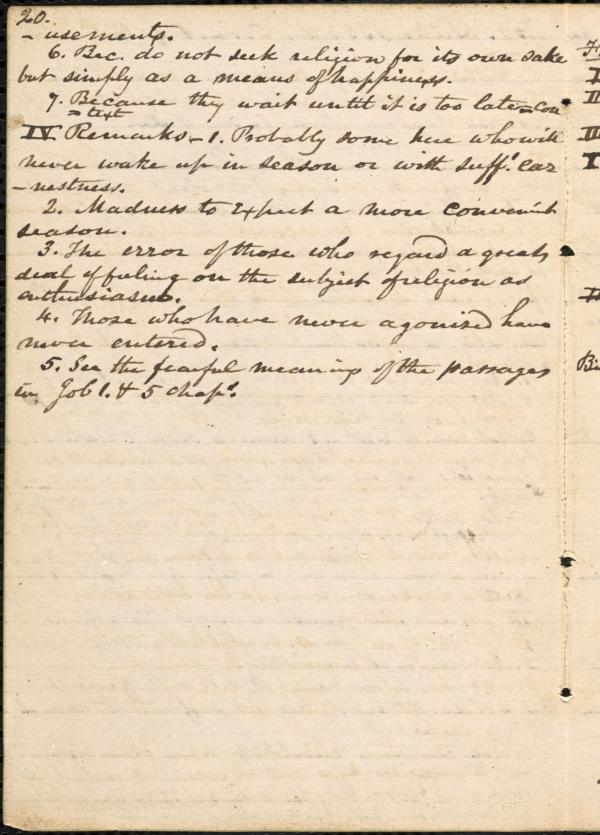 20.
- usements.
6. Bec. do not seek religion for its own sake
but simply as a means of happiness.
7. Because they wait until it is too late = con
= text
IV Remarks - 1. Probably some here who will
never wake up in season or with suff.t ear
- nestness.
2. Madness to Expect a more convenient
season.
3. The error of those who regard a great
deal of feeling on the subject of religion as
enthusiasm.
4. Those who have never agonized have
never entered.
5. See the fearful meaning of the passages
in Job 1. & 5 chap.
I
II
III